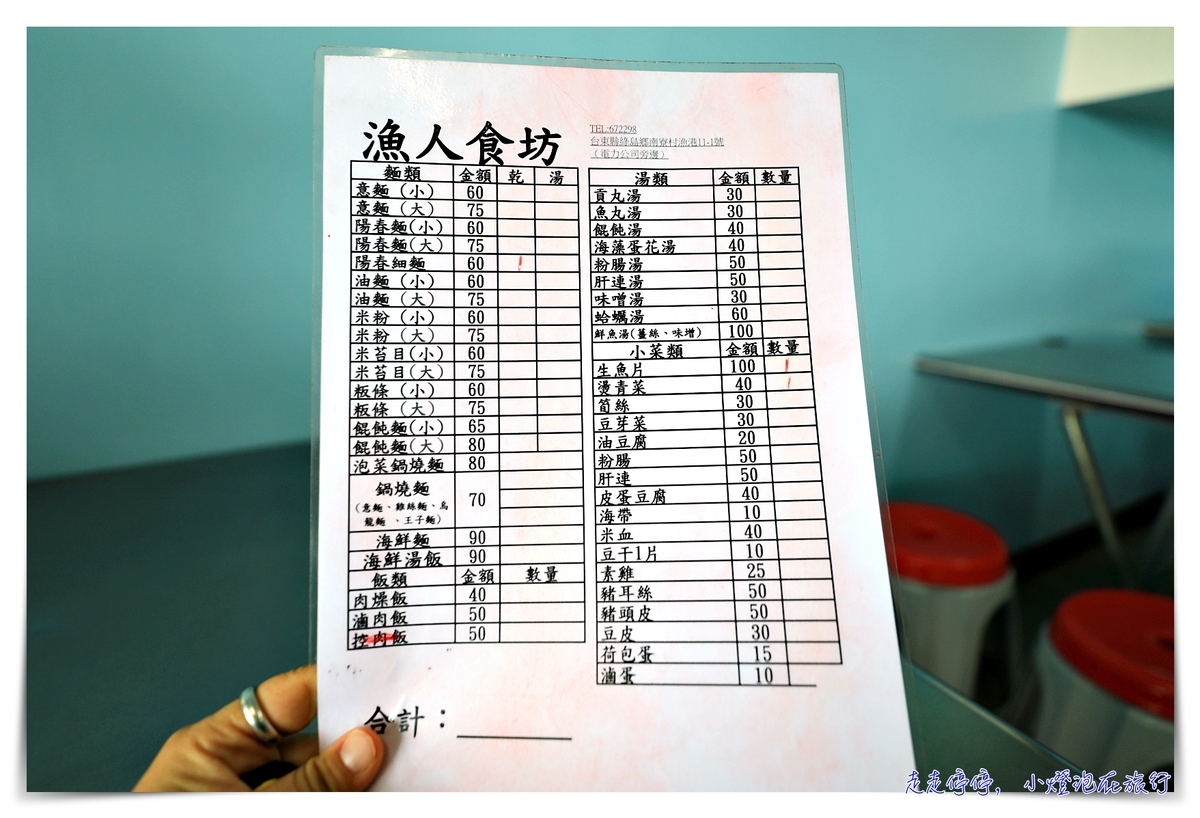 漁人食坊
TEL:672298
台東縣綠島鄉南寮村漁港11-1號
（電力公司旁邊）
麵類 金額 乾 湯
意麵（小） 60
意麵（大） 75
陽春麵(小) 60
陽春麵(大) 75
陽春細麵 60
油麵（小） 60
油麵（大） 75
米粉（小） 60
米粉（大） 75
米苔目(小) 60
米苔目(大) 75
粄條（小） 60
粄條（大） 75
餛飩麵(小) 65
餛飩麵(大) 80
泡菜鍋燒麵 80
鍋燒麵 70
（意麵、雞絲麵、烏
龍麵、王子麵）
海鮮麵 90
海鮮湯飯 90
飯類 金額 數量
肉燥飯 40
滷肉飯 50
控肉飯 50
合計：
湯類 金額 數量
貢丸湯 30
魚丸湯 30
餛飩湯 40
海藻蛋花湯 40
粉腸湯 50
肝連湯 50
味噌湯 30
蛤蠣湯 60
鮮魚湯(薑絲、味增) 100
小菜類 金額 數量
生魚片 100
燙青菜 40
筍絲 30
豆芽菜 30
油豆腐 20
粉腸 50
肝連 50
皮蛋豆腐 40
海帶 10
米血 40
豆干1片 10
素雞 25
豬耳絲 50
豬頭皮 50
豆皮 30
荷包蛋 15
滷蛋 10
走走停停，小燈泡在旅行